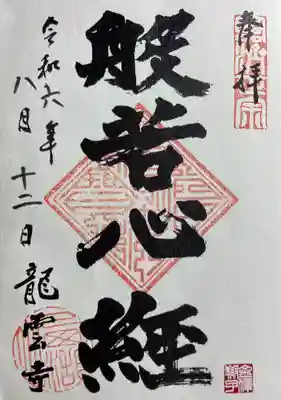 奉拝
般若心経
令和六年
八月十二日
龍雲寺